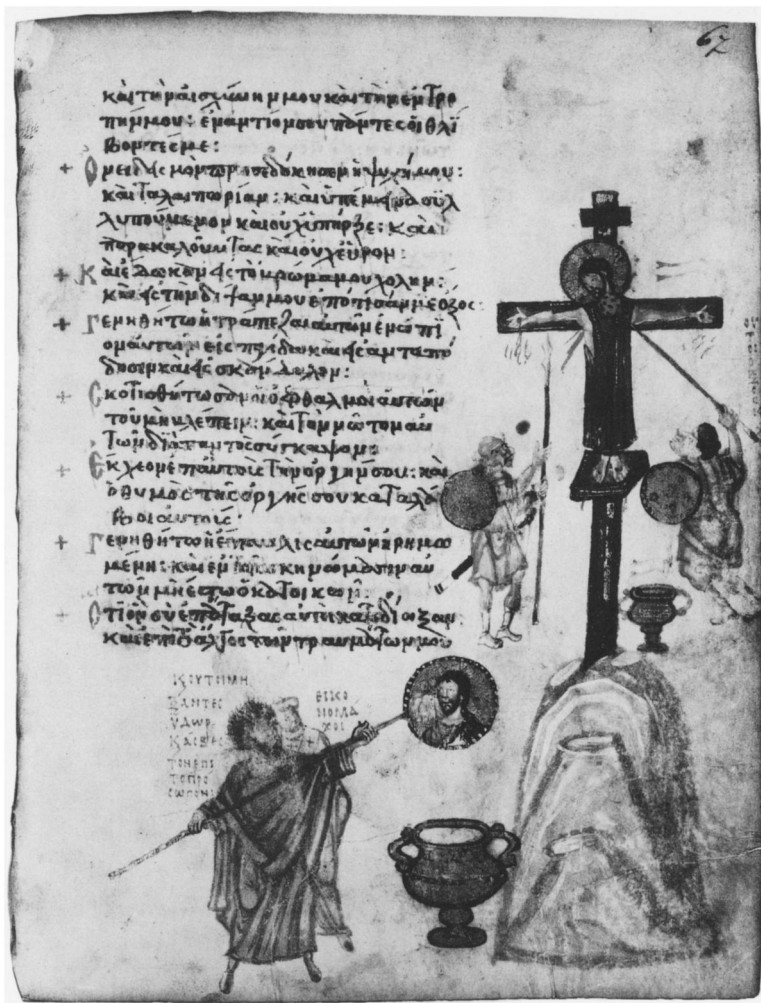 67
καὶ τὴν αἰσχύνην μου καὶ τὴν ἐντρο
πήν μου: ἐναντίον σου πάντες οἱ θλί
βοντές με:
+ Ὀνειδισμὸν προσεδόκησεν ἡ ψυχή μου:
καὶ ταλαιπωρίαν: καὶ ὑπέμεινα συλ
λυπούμενον καὶ οὐχ ὑπῆρξε: καὶ
παρακαλοῦντας καὶ οὐχ εὗρον:
+ Καὶ ἔδωκαν εἰς τὸ βρῶμα μου χολήν:
καὶ εἰς τὴν δίψαν μου ἐπότισάν με ὄξος:
+ Γενηθήτω ἡ τράπεζα αὐτῶν ἐνώπι
ον αὐτῶν εἰς παγίδα καὶ εἰς ἀνταπό
δοσιν καὶ εἰς σκάνδαλον:
+ Σκοτισθήτωσαν οἱ ὀφθαλμοὶ αὐτῶν
τοῦ μὴ βλέπειν: καὶ τὸν νῶτον αὐ
τῶν διὰ παντὸς σύγκαψον:
+ Ἔκχεον ἐπ' αὐτοὺς τὴν ὀργήν σου: καὶ
ὁ θυμὸς τῆς ὀργῆς σου καταλά
βοι αὐτούς:
+ Γενηθήτω ἡ ἔπαυλις αὐτῶν ἠρημω
μένη: καὶ ἐν τοῖς σκηνώμασιν αὐ
τῶν μὴ ἔστω ὁ κατοικῶν:
+ Ὅτι ὃν σὺ ἐπάταξας αὐτοὶ κατεδίωξαν:
καὶ ἐπὶ τὸ ἄλγος τῶν τραυμάτων μου
Κ ΟΥΤΟΙ ΜΗ
ΞΑΝΤΕΣ
ΥΔΩΡ
ΚΑΙ
ΕΙΚΟ
ΝΟΜΑ
ΧΟΙ